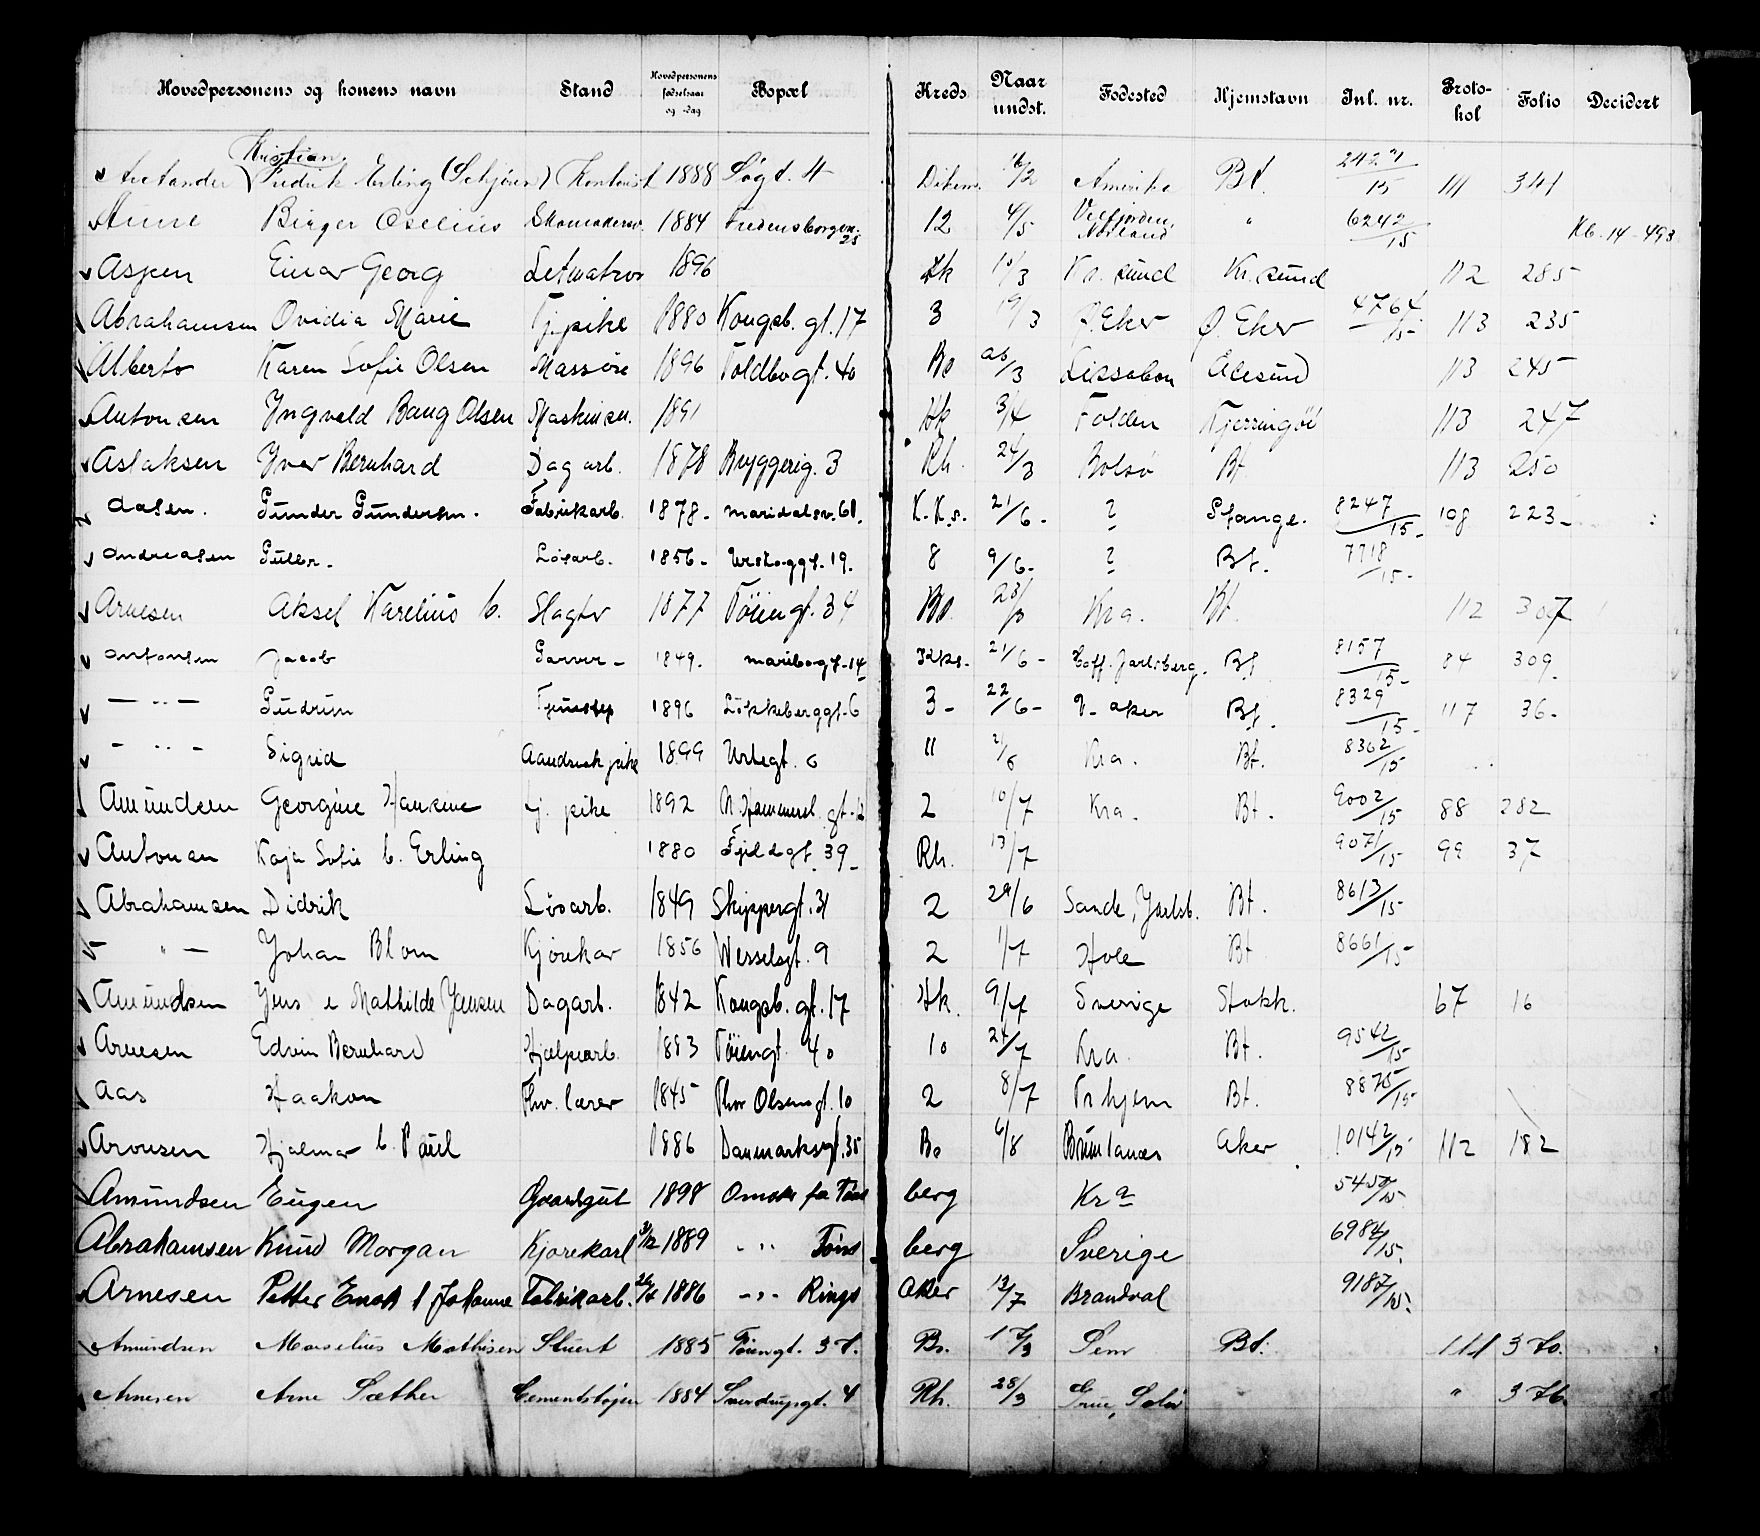 Hovedpersonens og konens navn Stand Hovedpersonens fødselsaar og -dag Bopæl Kreds Naar undst. Fødested Hjemstavn Inl. nr. Protokol Folio Decidert
Kristian
Fredrik Erling (Schjøren) Kontorist 1888 Søgt. 4 Dikem. 16/2 Amerika Bt. 15 111 341
Aune Birger Oselius 1884 Fredensborgvn. 28 12 4/5 Velfjorden, Norland " 6242/15 Kb. 14 - 493
Aspen Einar Georg Letmatros 1896 Hk 10/3 Kr. sund Kr. sund 112 285
Abrahamsen Ovidia Marie Tj. pike 1880 Kongsb. gt. 17 3 19/3 Ø. Eker Ø. Eker 4764/15 113 235
Alberto Karen Sofie Olsen Massøse 1896 Toldbogt. 40 Bo 26/3 Lissabon Ålesund 113 245
Antonsen Yngvald Bang Olsen Maskinsm. 1891 Hk 3/4 Folden Kjerringöe 113 247
Aslaksen Yver Bernhard Dagarb. 1878 Bryggerig. 3 Rh. 24/3 Bolsø Bt. 113 250
Aasen. Gunder Gundersen. Fabrikarb. 1878- Maridalsv. 61. K.K.s. 21/6- ? Stange. 8247/15- 108 223-
Andreasen Løsarb. 1856- 19. 8 9/6- ? Bt. 7718/15-
Arnesen Aksel Karelius b. Slagter 1877 Töiengt. 34 Bo. Kra. Bt. 112 307
Antonsen Jacob Garver- 1849. Maribogt. 14 Kks. 21/6- Hoff. Jarlsberg. Bt. 8157/15- 84 309
— " — Gudrun 1896 Løkkeberggt. 6 3- 22/6- V. Aker Bt. 8329/15- 117 36-
- " - Sigrid 1899 Urtegt. 6 11 2/6 Kra. Bt. 8362/15
Amundsen Georgine Hansine tj. pike 1892 N. Hammersb. gt. 12 2 10/7 Kra. Bt. 9002/15 88 282
Antonsen Kaja Sofie b. Erling 1880 Fjeldgt. 39- Rh. 13/7 9071/15 99 37
Abrahamsen Didrik Løsarb. 1849 Skippergt. 31 2 29/6 Sande, Jarlsb. Bt. 8613/15
" — Johan Blom Kjørekar 1856 Wesselsgt. 9 2 1/7 Hole Bt 8661/15
Amundsen Jens e Mathilde Jensen Dagarb. 1842 Kongsb. gt. 17 Hk. 9/7 Sverige Stokk. 67 16
Arnesen Edvin Bernhard Hjælpearb. 1893 Töiengt. 40 10 24/7 Kra. Bt. 9542/15
Aas Haakon Fhv. lærer 1845 Thor Olsensgt. 10 2 8/7 Tr.hjem Bt. 8875/15
Arvesen Hjalmar b. Paul 1886 Danmarksgt. 35 Bo 6/8 Brunlanæs Aker 10142/15 112 182
Amundsen Eugen Gaardgut 1898 Omsk. fra Tøns berg Kra 5457/15.
Abrahamsen Knud Morgan Kjørekarl 3/12 1889 - " - Tøns berg Sverige 6984/15.
Arnesen Petter Enok f Johanne Fabrikarb. 26/4 1886 - " - Rings aker 13/7 Brandval 9187/15.
Amundsen Marselius Mathisen Stuert 1885 Töiengt. 37. Bo. 17/3 Sem Bt. 111 370.
Arnesen Arne Sæther Cementstøper 1884 Sverdrupsgt. 4 Rh. 28/3 Grue, Solør " " 376.